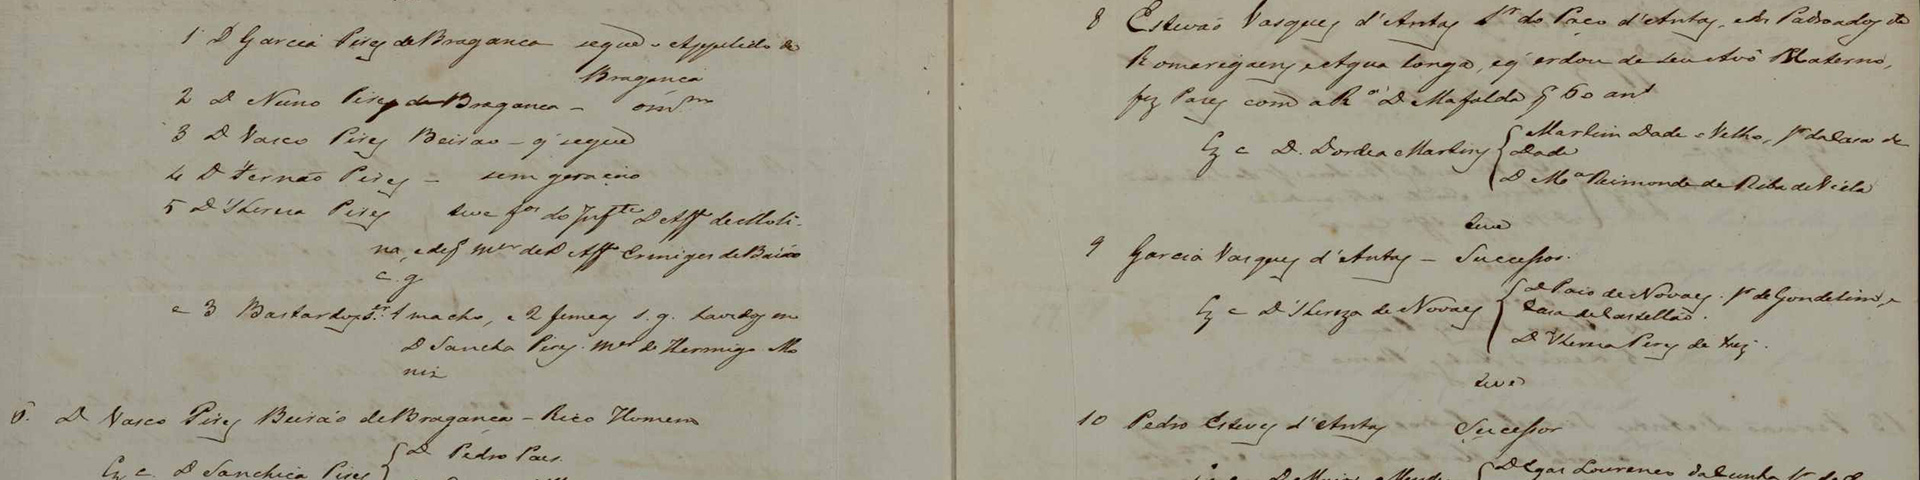 1 D Garcia Pires de Bragança segue o Appelido de
Bragança
2 D Nuno Pires de Bragança –
3 D Vasco Pires Beirao – q segue
4 D Fernão Pires – sem geração
5 D Thereza Pires teve fos do Infte D Affo de Moli-
na, e dess mer de D Affo Ermiges de Baião
c. g
e 3 Bastardos 1 macho, e 2 femeas s. g. havidos em
D Sancha Pires mer de Hermigo Mo
niz
6. D Vasco Pires Beirão de Bragança – Rico Homem
Cz c. D Sanchica Pires { D Pedro Paes
8 Estevão Vasques d'Antas Sr do Paço d'Antas, e dos Padroados de
Romarigaens e Agua longa, q' erdou de seu Avô Materno,
fez Pazes com a Ra D Mafalda 60 ans
Cz c D. Dordea Martins { Martim Dade o Velho, Sr da Casa de
Dade
D Ma Reimonde de Riba de Vizela
teve
9 Garcia Vasques d'Antas – Sucessor.
Cz c D Thereza de Novaes { D Paio de Novaes Sr de Gondelim, e
Casa de Castellão.
D Thereza Pires de
teve
10 Pedro Esteves d'Antas Sucessor
D Egas Lourenço da Cunha Sr de